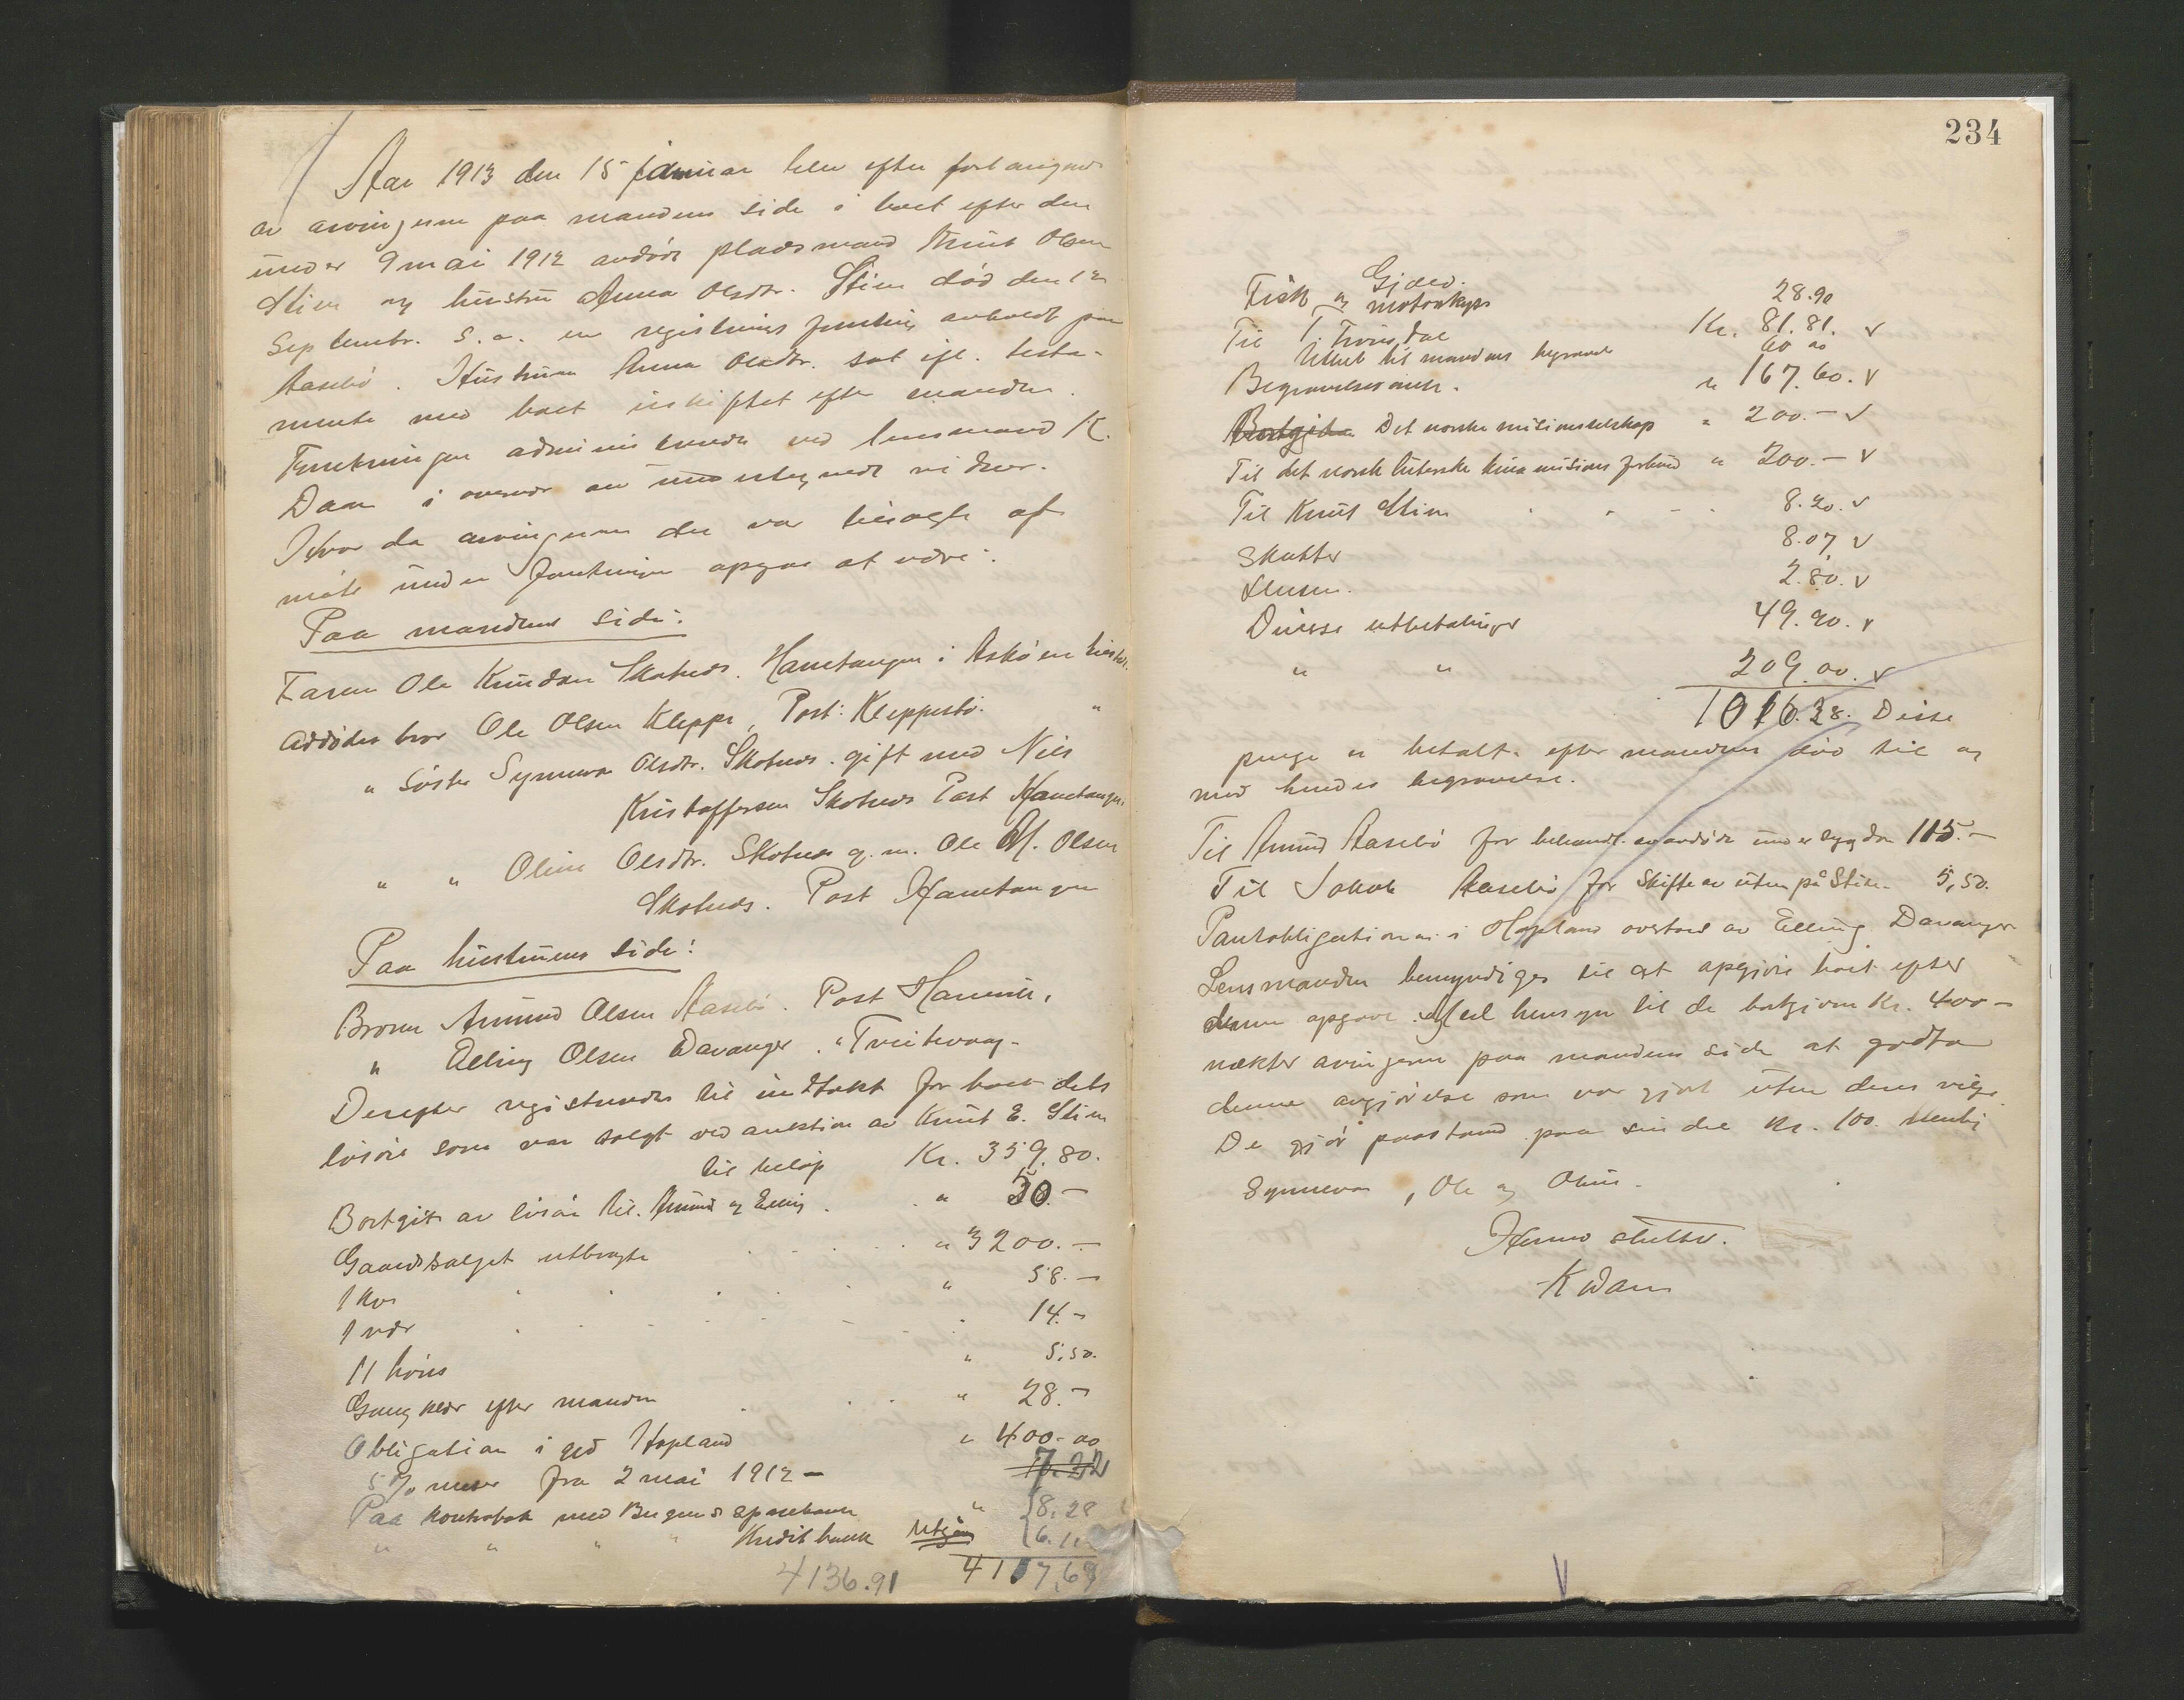 Aar 1913 den 15 januar blev efter forlangende
av arvingerne paa mandens side i boet efter den
under 9 mai 1912 avdøde pladsmand Knut Olsen
Stien og hustru Anna Olsdtr. Stien død den 12
Septembr. s. a. en registrerings forretning avholdt paa
Aasebø. Hustruen Anna Olsdtr. sat ifl. testa-
mente med boet uskiftet efter manden.
Forretningen administrertes ved lensmand K.
Dam i overvær av undertegnede vidner.
Hvor da arvingerne der var tilsagte at
møte under forretningen opgaves at være:
Paa mandens side:
Faren Ole Knudsen Skotnes. Hanetangen i Askøen
Avdødes bror Ole Olsen Kleppe, Post: Kleppestø. "
" Søster Synneva Olsdtr. Skotnes. gift med Nils
Kristoffersen Skotnes Post Hanetangen
" " Oline Olsdtr. Skotnes g. m. Ole M. Olsen
Skotnes. Post Hanetangen
Paa hustruens side:
Broren Amund Olsen Aasebø. Post Hammer,
" Elling Olsen Davanger. " Tveitevaag-
Derefter registrertes til indtækt for boet dets
løsøre som var solgt ved auktion av Knut E. Stien
til beløp Kr. 359,80.
Bortgit av løsøre til Amund og Elling . . " 50.-
Gaardssalget utbragte . . . . " 3200.-
1 ko . . . . " 58.-
1 vær . . . . . 14.-
11 høns " 5,50.
Gangklær efter manden . . . " 28.-
Obligation i grd Hopland " 400.00
5% renter fra 2 mai 1912 - 7.22
Paa kontrabok med Bergens sparebank " 8,28
" " " " Kreditbank Utgjør 6.1
4136.91 4117,69
234
Gjæld.
Fisk og motorskyss 28.90
Til T. Kr. 81.81. v
Utlæt til mandens begravelse 60 00
Begravelsesomk. " 167.60. v
Bortgitt Det norske misionsselskap " 200.- v
Til det norsk luterske kina misions forbund " 200.- v
Til Knut Stien . . - . 8.20. v
Skatter 8.07. v
2.80. v
Diverse utbetalinger 49.90. v
" " 209.00. v
1016.28. Disse
penge er betalt efter mandens død til og
med hendes begravelse.
Til Amund Aasebø for behandl. av avdøde under sygdom 115.-
Til Jakob Aasebø for Skifte av uten på Stien. 5,50.
Pantobligationen i Hopland overtaes av Elling Davanger
Lensmanden bemyndiges til at opgjøre boet efter
denne opgave. Med hensyn til de bortgivne Kr. 400-
nekter arvingerne paa mandens side at godta
denne avgjørelse som var gjort uten deres vilje.
De gjør paastand paa sin del Kr. 100. nemlig
Synneva, Ole og Oline.
Hermed sluttet.
K Dam